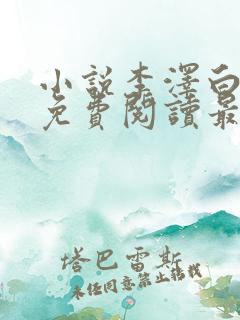 小說李澤白
免費閱讀最
塔巴雷斯
未經同意禁止轉載